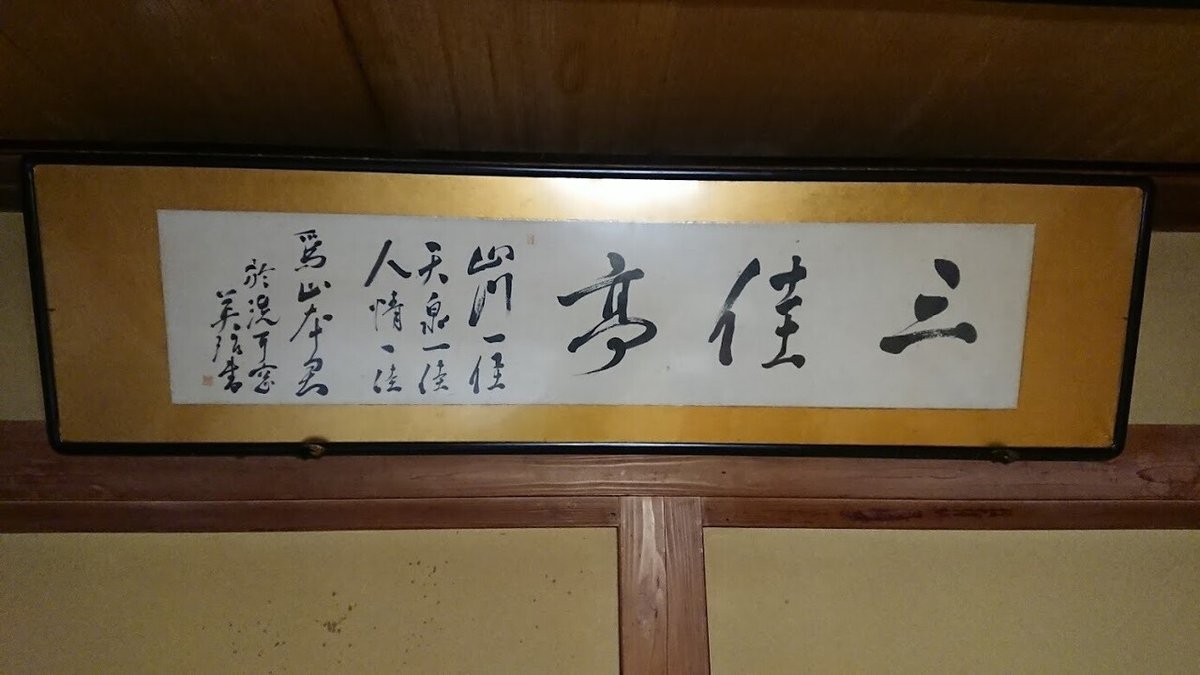 三佳亭
山川一佳
天泉一佳
人情一佳
為山本君
於
英治書